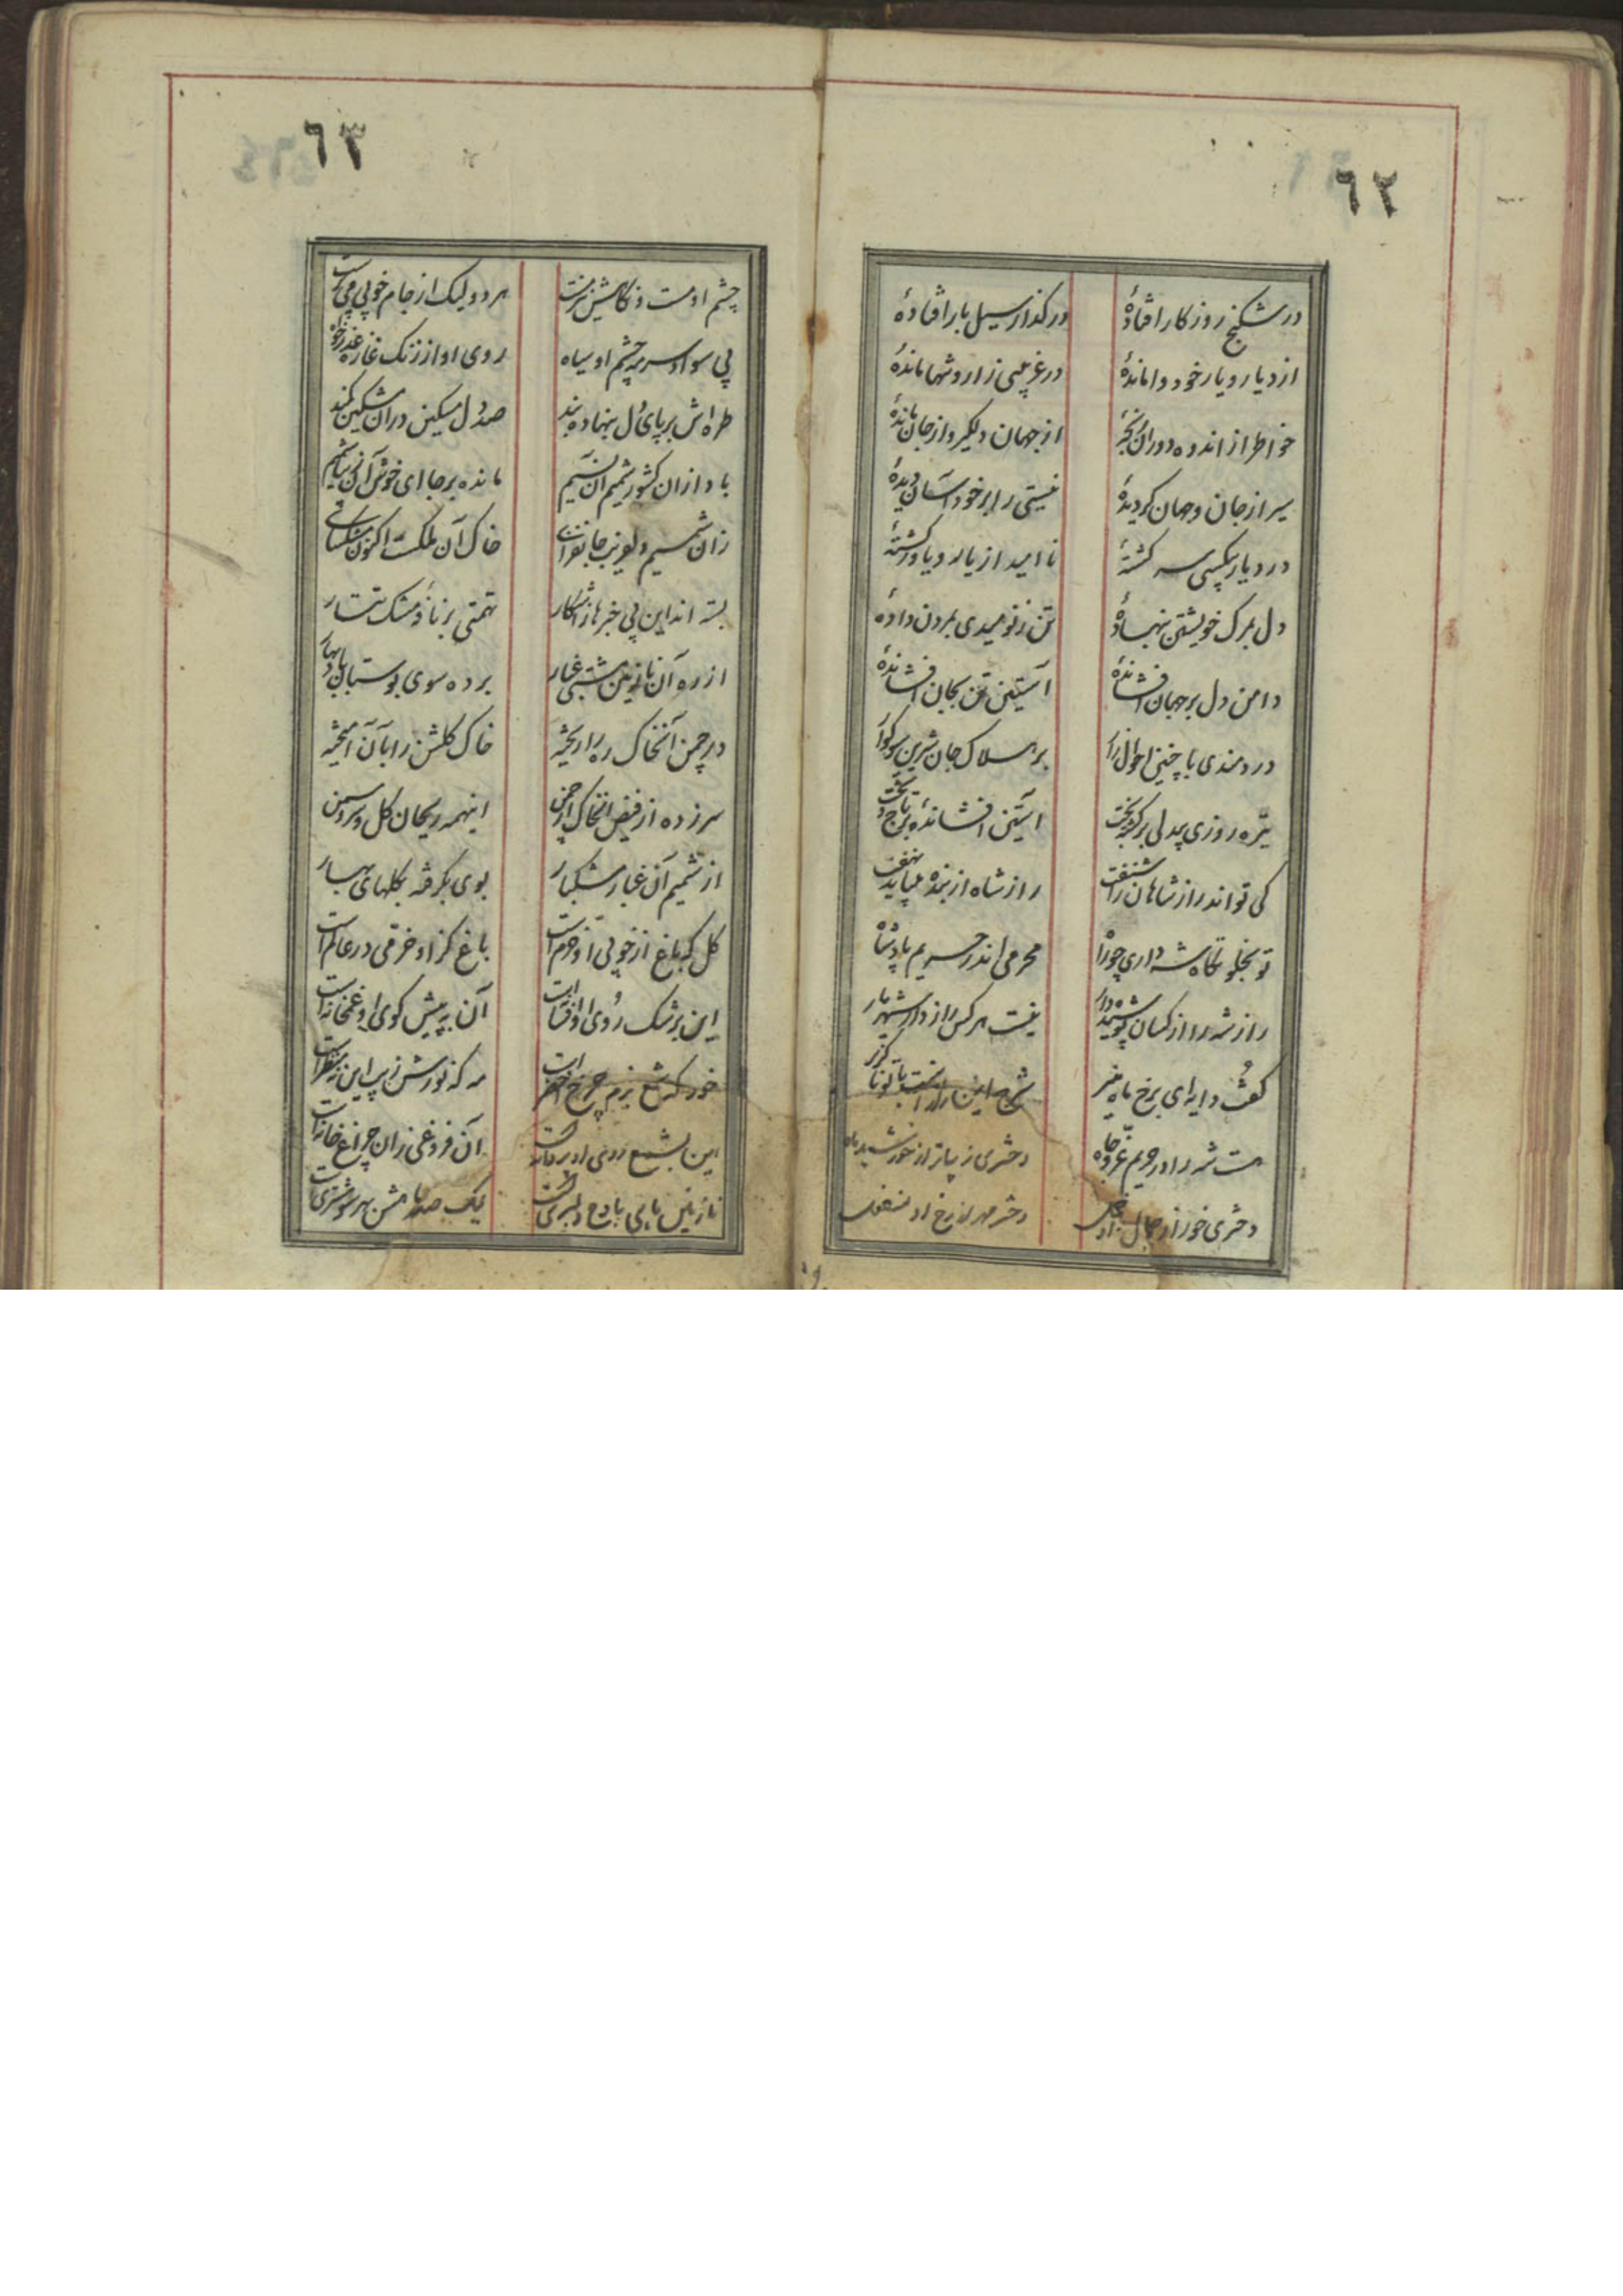 ٦٢
در شکنج روزگار افتادهٔ در گذار سیل بار افتادهٔ
از دیار و یار خود وا ماندهٔ در غریبی زار و تنها ماندهٔ
خواطر از اندوه دوران رنجهٔ از جهان دلگیر و از جان
سیر از جان و جهان گردیدهٔ نیستی را بر خود آسان دیدهٔ
در دیار بیکسی سر گشتهٔ نا امید از یار و یاور گشتهٔ
دل بمرک خویشتن بنهادهٔ تن ز نومیدی بمردن دادهٔ
دامن دل بر جهان افشاندهٔ آستین تن بجان افشاندهٔ
دردمندی با چنین احوال زار بر هلاک جان شیرین سوکوار
تیره روزی بیدلی برگشته بخت آستین افشانده بر تاج و تخت
کی تواند راز شاهان را شنفت راز شاه از بنده میباید نهفت
تو بخلوتگاه شه داری چو راه محرمی اندر حریم پادشاه
راز شه را از کسان پوشیده دار نیست هر کس رازدار شهریار
گفت دایه ای برخ ماه منیر شرح این راز است با تو ناگزیر
هست شه را در حریم عز و جاه دختری زیباتر از خورشید و ماه
دختری خور از جمال او خجل دختر مهر از رخ او منفعل
٦٣
چشم او مست و نگاهش نیز مست هر دو لیک از جام خوبی می پرست
بی سواد سرمه چشم او سیاه روی او از رنک غازه
طره اش بر پای دل بنهاده بند صد دل مسکین در آن مشکین کمند
باد از ان کشور شمیم آن نسیم مانده بر جا ای خوش آن
زان شمیم دلفریب جانفزای خاک آن مملکت اکنون مشکسای
بسته اند این بی خبرها ز آشکار تهمتی بر نافهٔ مشک تتار
از ره آن نازنین مشتی غبار برده سوی بوستان باد بهار
در چمن آنخاک ره را ریخته خاک گلشن را با آن آمیخته
سرزده از فیض آنخاک از چمن اینهمه ریحان و گل و سرو سمن
از شمیم آن غبار مشکبار بوی بگرفته گلهای بهار
گل که باغ از خوبی او خرم است باغ کز او خرمی در عالم است
این برشک روی او افتاده است آن به پیش کوی او غمخانه است
خور که شمع بزم چرخ اخضر است مه که نورش زیب این نه منظر است
این بشمع روی او پروانه است آن فروغی زان چراغ خانه است
نازنین باین با دلبری است لیک صد چون مشتری است